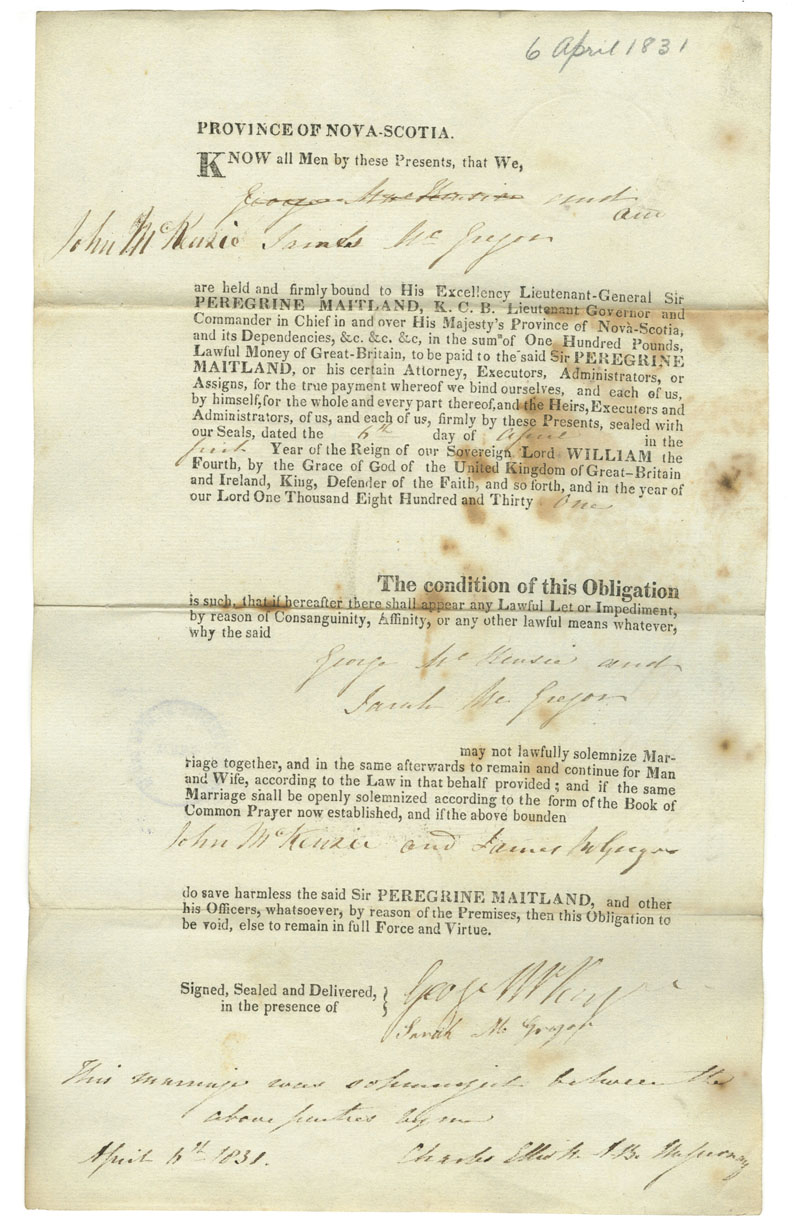 6 April 1831
PROVINCE OF NOVA-SCOTIA.
KNOW all Men by these Presents, that We,
George MacKensie and
and
John McKenzie James McGregor
are held and firmly bound to His Excellency Lieutenant-General Sir
PEREGRINE MAITLAND, K. C. B. Lieutenant Governor and
Commander in Chief in and over His Majesty's Province of Nova-Scotia,
and its Dependencies, &c. &c. &c, in the sum of One Hundred Pounds,
Lawful Money of Great-Britain, to be paid to the said Sir PEREGRINE
MAITLAND, or his certain Attorney, Executors, Administrators, or
Assigns, for the true payment whereof we bind ourselves, and each of us,
by himself, for the whole and every part thereof, and the Heirs, Executors and
Administrators, of us, and each of us, firmly by these Presents, sealed with
our Seals, dated the 6th day of April in the
first Year of the Reign of our Sovereign Lord WILLIAM the
Fourth, by the Grace of God of the United Kingdom of Great-Britain
and Ireland, King, Defender of the Faith, and so forth, and in the year of
our Lord One Thousand Eight Hundred and Thirty One
The condition of this Obligation
is such, that if hereafter there shall appear any Lawful Let or Impediment,
by reason of Consanguinity, Affinity, or any other lawful means whatever,
why the said
George McKensie and
Sarah McGregor
may not lawfully solemnize Mar-
riage together, and in the same afterwards to remain and continue for Man
and Wife, according to the Law in that behalf provided; and if the same
Marriage shall be openly solemnized according to the form of the Book of
Common Prayer now established, and if the above bounden
John McKenzie and James McGregor
do save harmless the said Sir PEREGRINE MAITLAND, and other
his Officers, whatsoever, by reason of the Premises, then this Obligation to
be void, else to remain in full Force and Virtue.
Signed, Sealed and Delivered,
in the presence of
George McKenzie
Sarah McGregor
This marriage was solemnized between the
above parties by me
April 6th 1831.
Charles Elliott A.B. Missionary